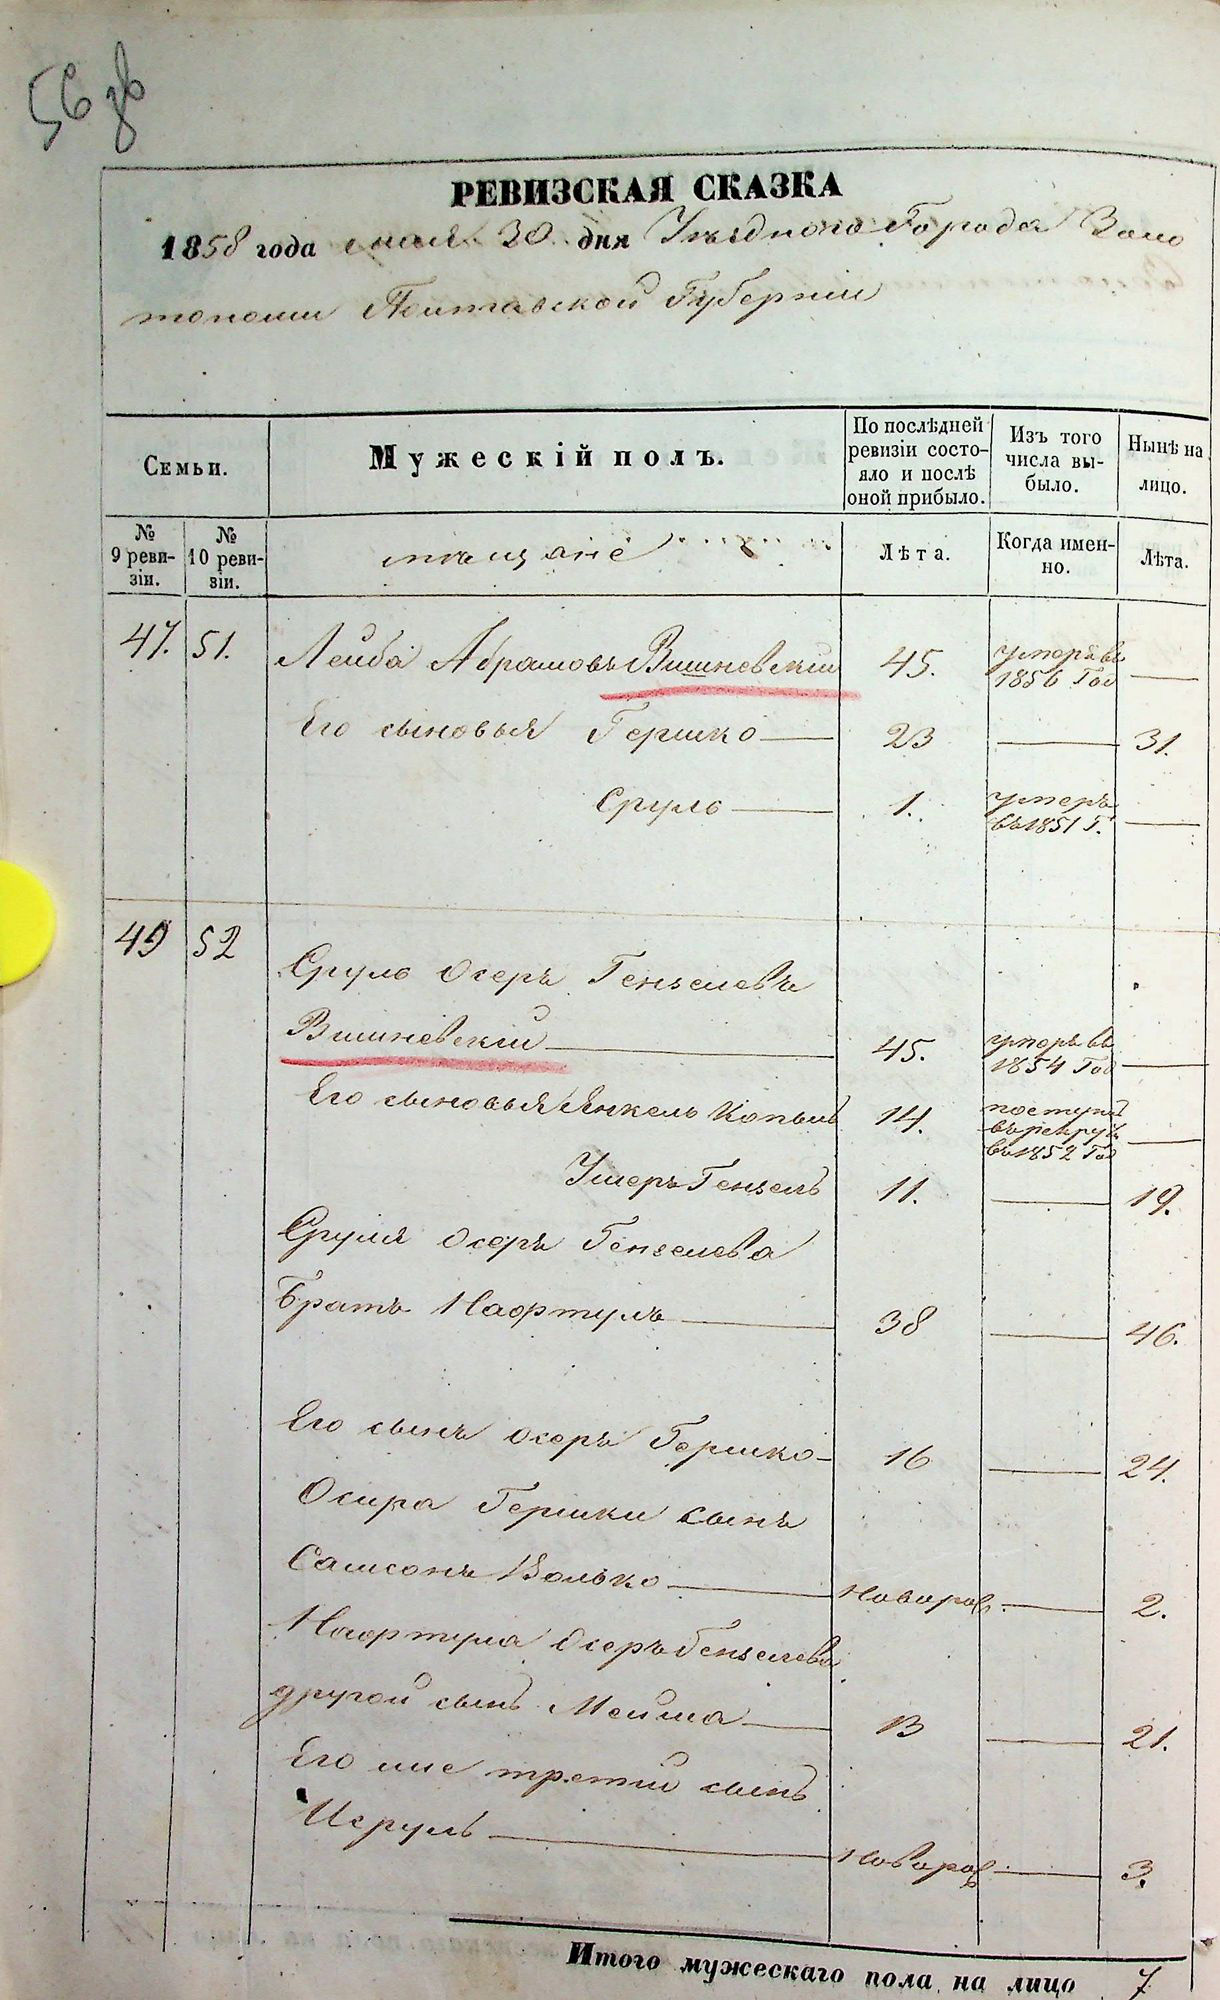 56 зв
РЕВИЗСКАЯ СКАЗКА
1858 года мая 30 дня Уѣзднаго Города Золо
тоноши Полтавской Губерніи
Семьи.
Мужескій полъ.
По послѣдней ревизіи состояло и послѣ оной прибыло.
Изъ того числа выбыло.
Нынѣ на лицо.
№ 9 ревизіи.
№ 10 ревизіи.
мѣщане
Лѣта.
Когда именно.
Лѣта.
47. 51. Лейба Абрамовъ Вишневскій 45. умеръ въ 1856 Год —
Его сыновья Гершко — 23 — 31.
Сруль — 1. умеръ въ 1851 Г. —
49 52 Сруль Осеръ Гензелевъ
Вишневскій — 45. умеръ въ 1854 Год —
Его сыновья Янкель Копыль 14. поступ въ рекру въ 1852 Год —
Ушеръ Гензель 11. — 19.
Сруля Осеръ Гензелева
Братъ Нафтуль — 38 — 46.
Его сынъ Осеръ Гершко — 16 — 24.
Осира Гершки сынъ
Самсонъ Волько — Новорож. — 2.
Нафтула Осеръ Гензелева
другой сынъ Мейша — 13 — 21.
Его же третій сынъ
Исруль — Новорож — 3.
Итого мужескаго пола на лицо 7